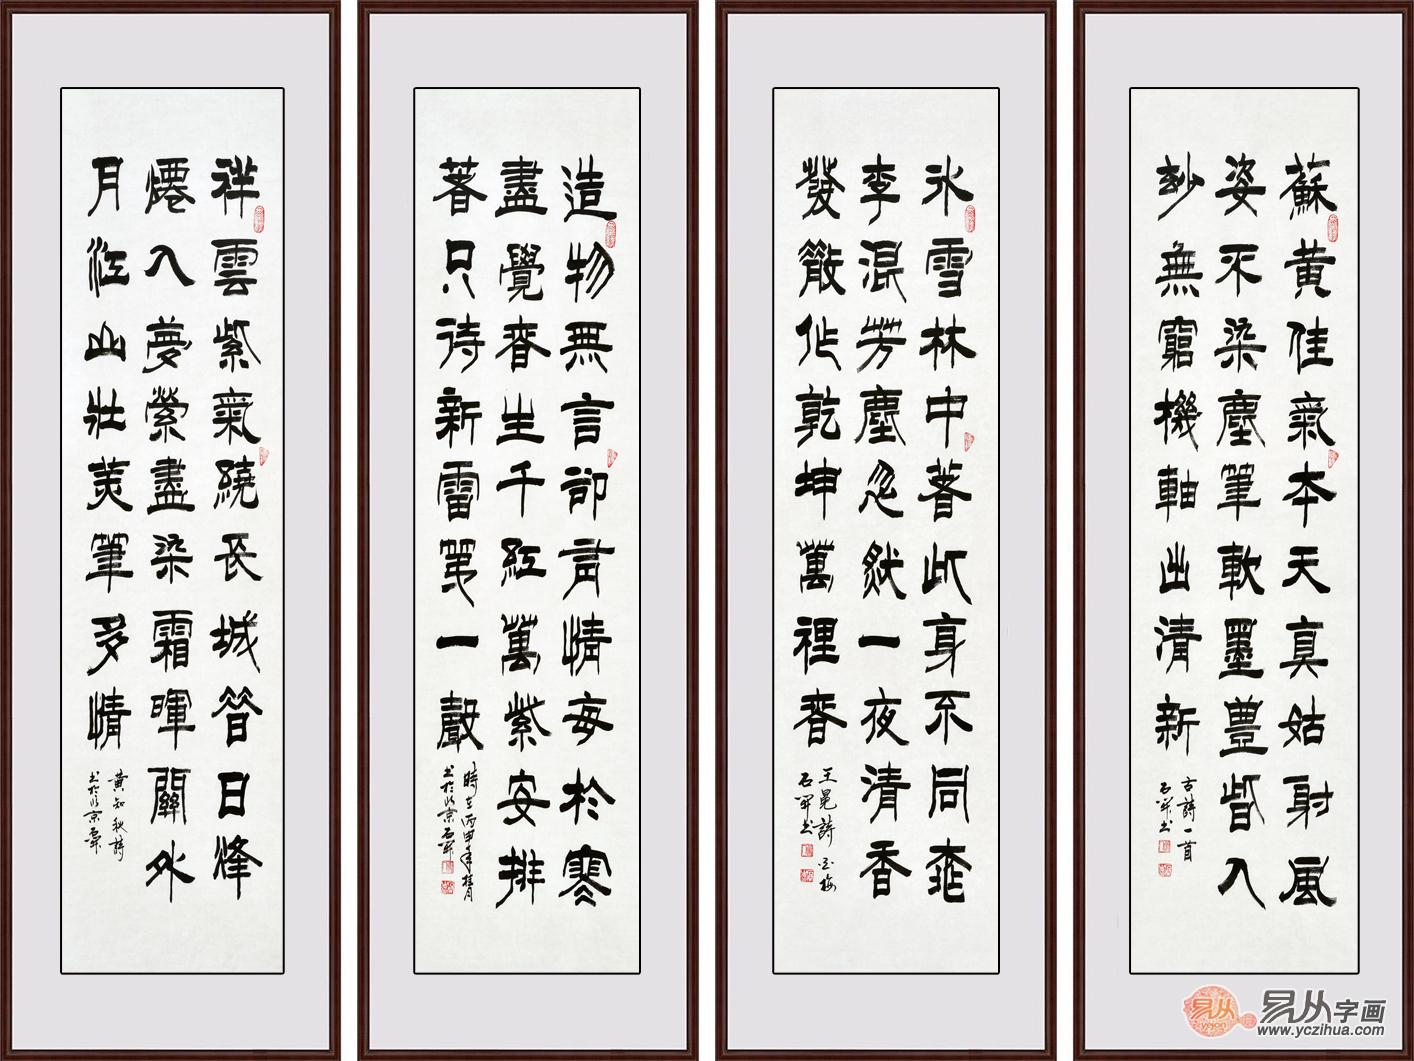 蘇黃佳氣本天真姑射風
姿不染塵筆軟墨豐皆入
妙無窮機軸出清新
古詩一首
氷雪林中著此身不同桃
李混芳塵忽然一夜清香
發散作乾坤萬裡春
王冕詩白梅
造物無言卻有情每於寒
盡覺春生千紅萬紫安排
著只待新雷第一聲
時在丙申年桂月
书於北京
祥雲紫氣繞長城昔日烽
煙入夢縈盡染霜暉關外
月江山壯美筆多情
黃知秋詩
书於北京
易从字画
yicjon
www.yczihua.com